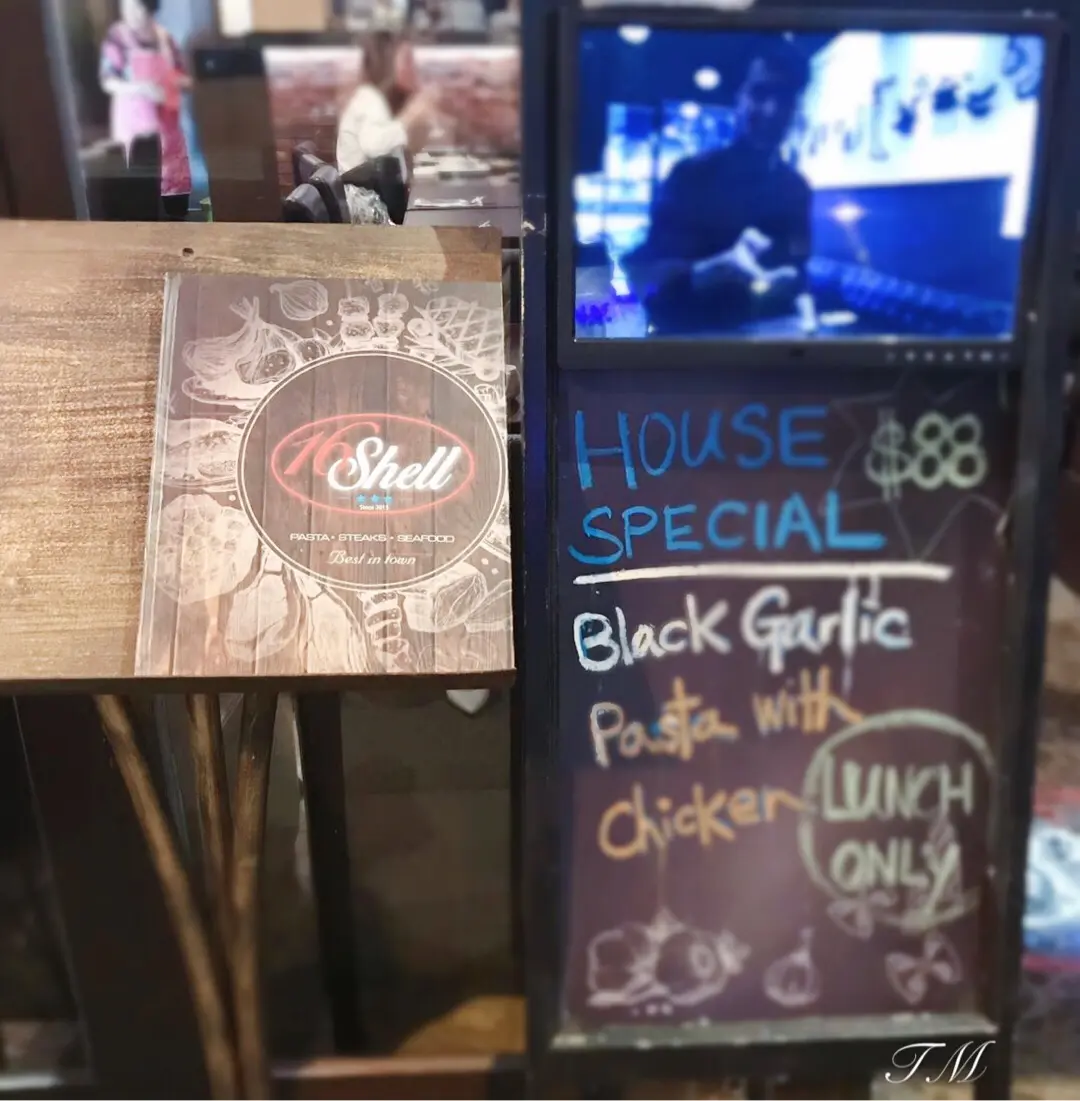 16 Shell
Since 2013
PASTA • STEAKS • SEAFOOD
Best in town
HOUSE $88
SPECIAL
Black Garlic
Pasta with
Chicken
LUNCH
ONLY
TM